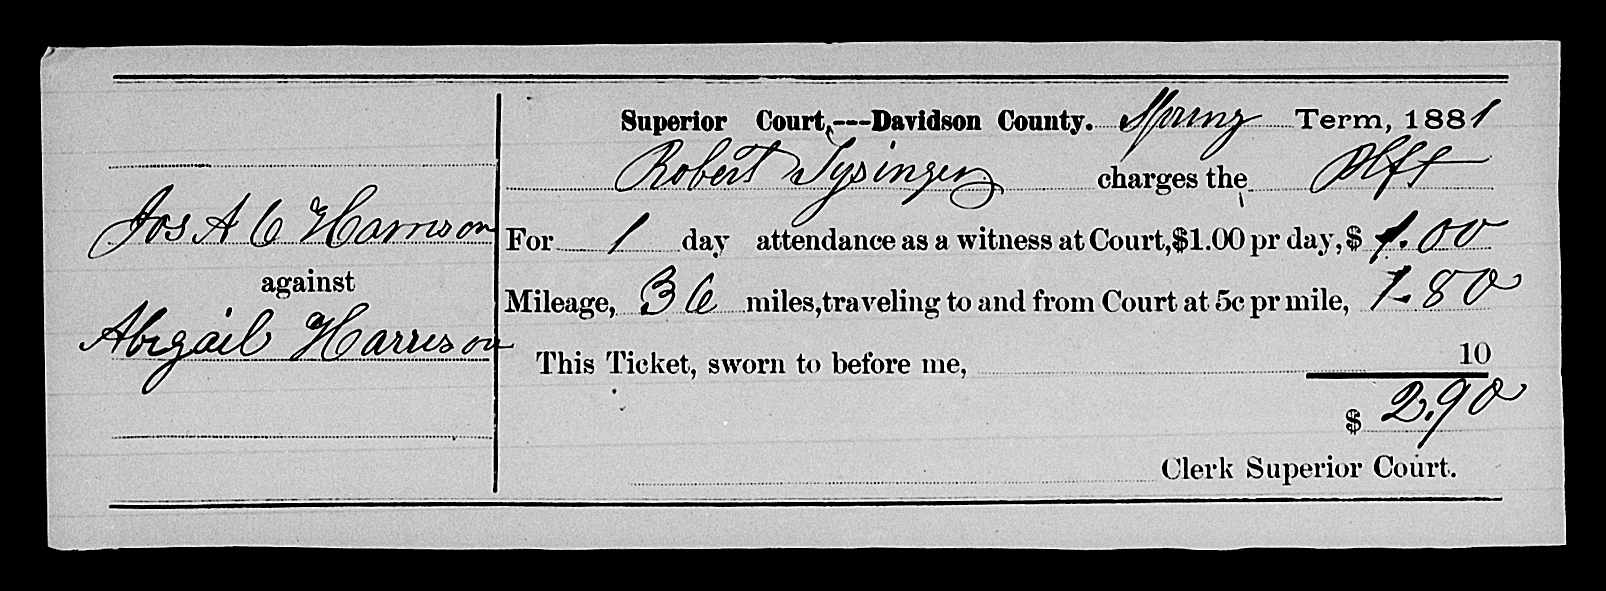 Jos A C Harrison
against
Abigail Harrison
Superior Court,---Davidson County. Spring Term, 1881
Robert Tysinger charges the Plff
For 1 day attendance as a witness at Court, $1.00 pr day, $ 1.00
Mileage, 36 miles, traveling to and from Court at 5c pr mile, 1.80
This Ticket, sworn to before me, 10
$ 2.90
Clerk Superior Court.